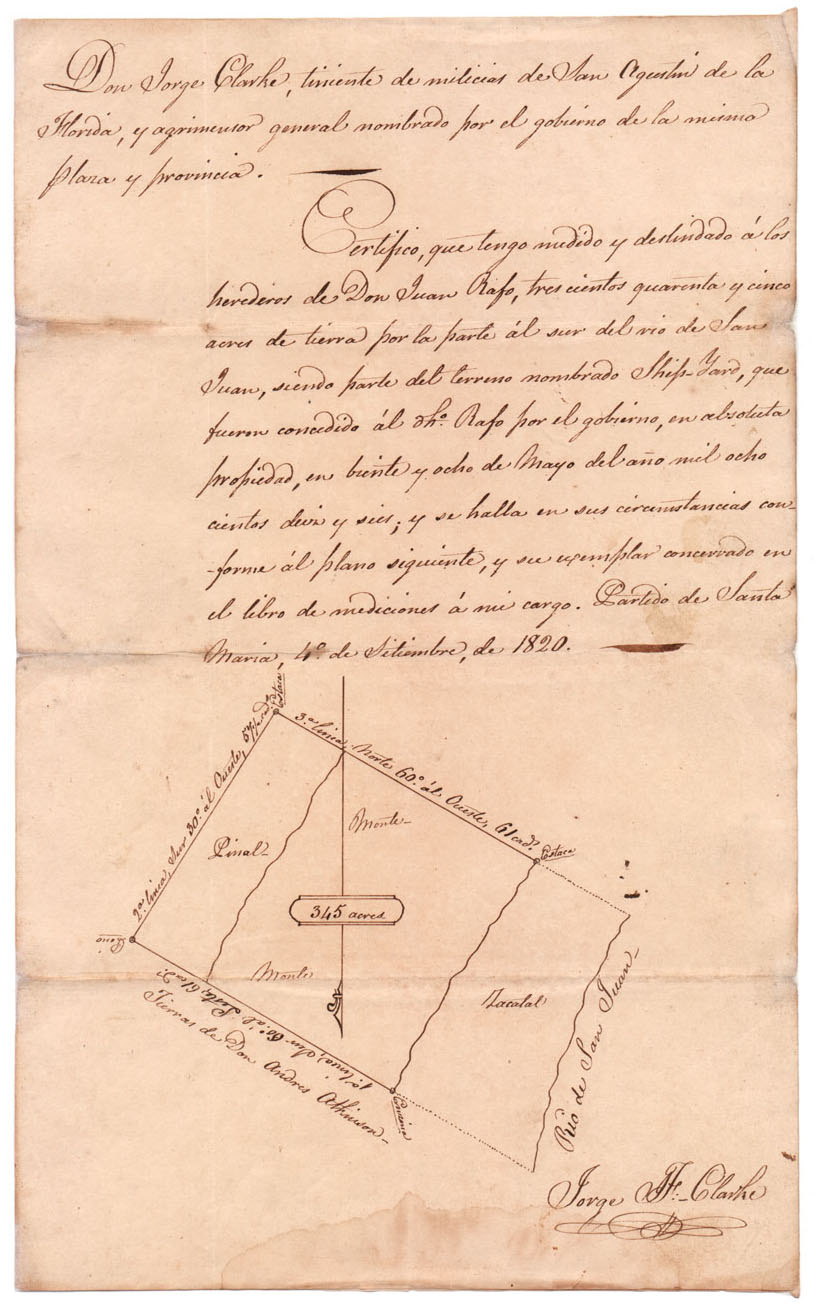 Don Jorge Clarke, tiniente de milicias de San Agustin de la
Florida, y agrimensor general nombrado por el gobierno de la misma
plaza y provincia.
Certifico, que tengo medido y deslindado á los
herederos de Don Juan Rafo, tres cientos quarenta y cinco
acres de tierra por la parte ál sur del rio de San
Juan, siendo parte del terreno nombrado Ship-Yard, que
fueron concedido ál dho. Rafo por el gobierno, en absoluta
propiedad, en biente y ocho de Mayo del año mil ocho
cientos diez y seis; y se halla en sus circumstancias con-
-forme ál plano siguiente, y su exemplar concervado en
el libro de mediciones á mi cargo. Partido de Santa
Maria, 4º. de Setiembre, de 1820.
Estaca
3.a linea, Norte 60.º ál Oueste, 61 cad.s
2.a linea, Sur 30.º ál Oueste, 57
Pinal
Monte
Estaca
345 acres
Monte
Zacatal
Rio de San Juan
1.a linea, Sur 60.º ál Leste, 61 cad.s
Tierras de Don Andres Atkinson
Jorge J. F. Clarke